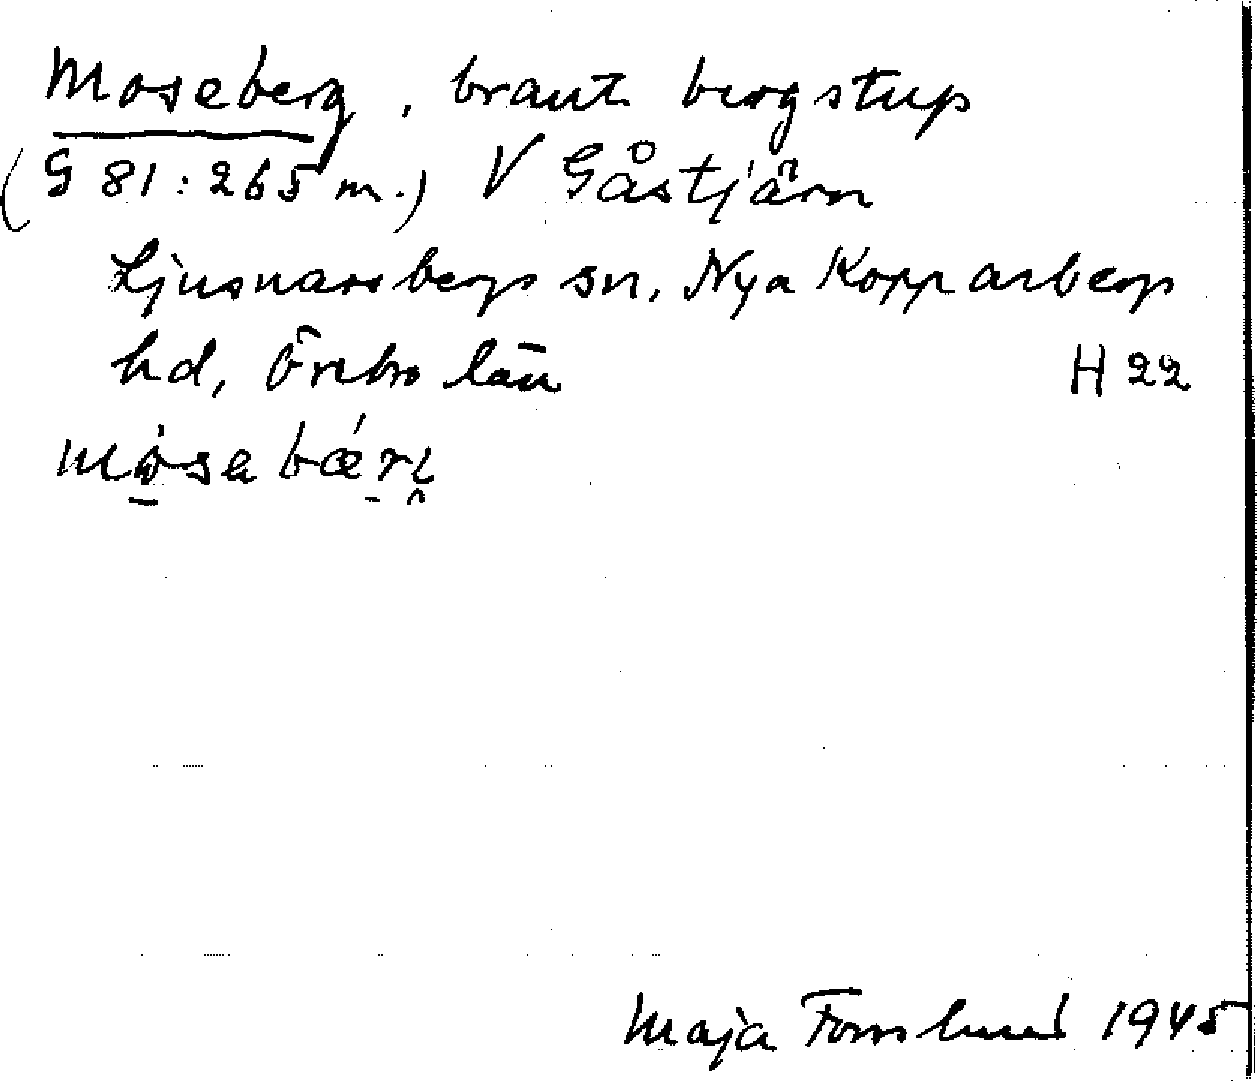 Moseberg, brant bergstup
(G 81:265 m.) V Gåstjärn
Ljusnarsbergs sn, Nya Kopparbergs
hd, Örebro län H 22
mò̱sabǽri̯
Maja Forslund 1945